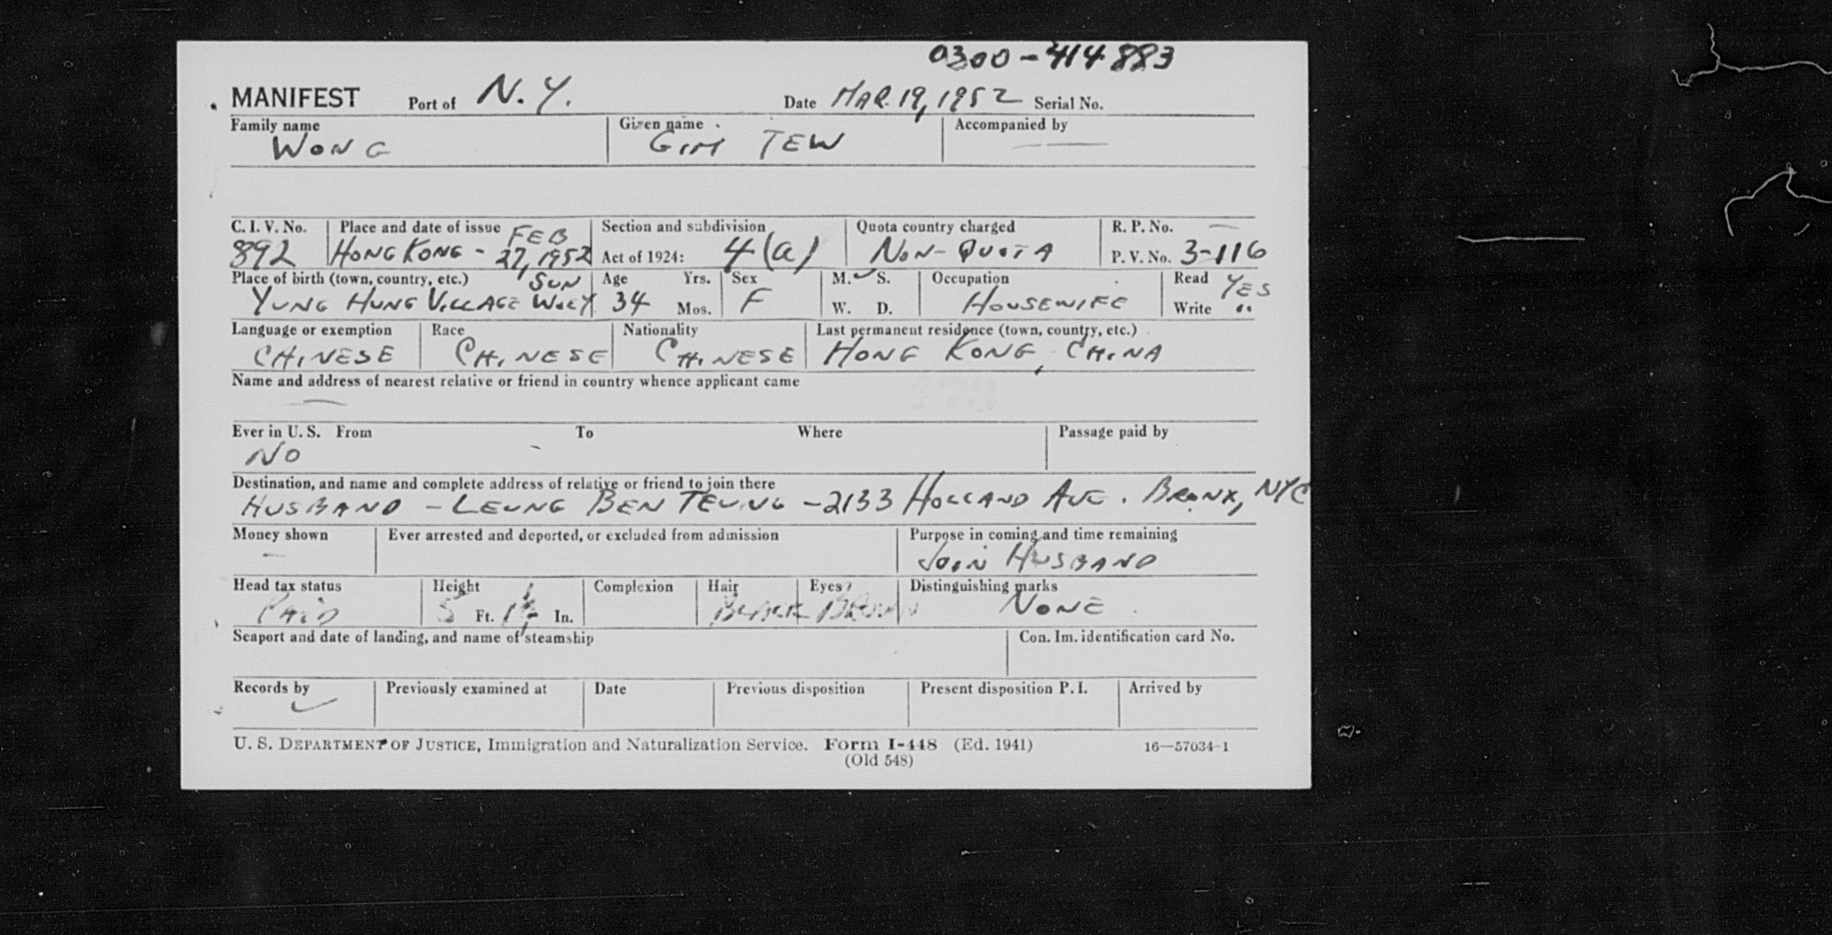 0300-414883
MANIFEST Port of N.Y. Date MAR. 19, 1952 Serial No.
Family name Given name Accompanied by
WONG GIM TEW
C. I. V. No. Place and date of issue Section and subdivision Quota country charged R. P. No.
892 HONG KONG - FEB 27, 1952 Act of 1924: 4(a) NON-QUOTA P. V. No. 3-116
Place of birth (town, country, etc.) Age Yrs. Sex M. S. Occupation Read YES
YUNG HUNG VILLAGE SUN 34 Mos. F W. D. HOUSEWIFE Write "
Language or exemption Race Nationality Last permanent residence (town, country, etc.)
CHINESE CHINESE CHINESE HONG KONG, CHINA
Name and address of nearest relative or friend in country whence applicant came
Ever in U. S. From To Where Passage paid by
NO
Destination, and name and complete address of relative or friend to join there
HUSBAND - LEUNG BEN - 2133 HOLLAND AVE. BRONX, NYC
Money shown Ever arrested and deported, or excluded from admission Purpose in coming and time remaining
JOIN HUSBAND
Head tax status Height Complexion Hair Eyes Distinguishing marks
PAID 5 Ft. In. BLACK BROWN NONE
Seaport and date of landing, and name of steamship Con. Im. identification card No.
Records by Previously examined at Date Previous disposition Present disposition P. I. Arrived by
U. S. DEPARTMENT OF JUSTICE, Immigration and Naturalization Service. Form I-448 (Ed. 1941) 16—57034-1
(Old 548)